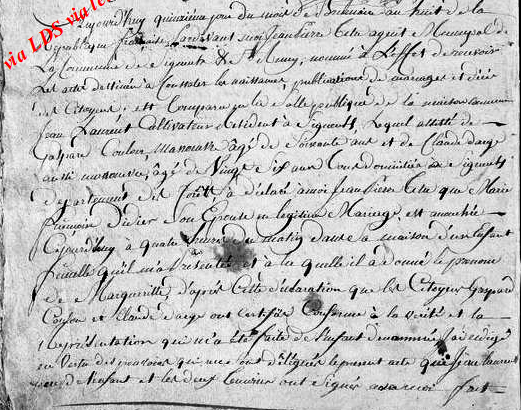 via LDS via
aujourd'huy quinzieme jour du mois de an huit de la
Republique francaise pardevant moi jean pierre agent Municipal
de La Commune de nommé à L'effet de recevoir
Les actes destinés a Constater les naissances, publications de mariages et décé
des Citoyens, est Comparu en la salle publique de la maison Commune
jean Laurent Cultivateur Résident a Lequel assisté de
Gaspard Coulon manouvre agé de soixante ans et de Claude
aussi manouvre, agé de Vingt six ans tous domiciliés a
departement de à déclaré a moi jean pierre que Marie
d'idier son Epouse en legitime Mariage, est accouchée
Cejourd'huy a quatre heures du matin dans sa maison d'un Enfant
femelle qu'il m'a présenté et a la quelle il à donné le prenom
de Margueritte, d'après Cette déclaration que les Citoyens Gaspard
Coulon et Claude ont certifiée Conforme à la vérité et la
représentation qui m'a été faite de l'enfant denommé, jai redigé
en Vertu des pouvoirs qui me sont délégués le present acte que jean laurent
pere de l'enfant et les deux temoins ont Signé avec moi fait